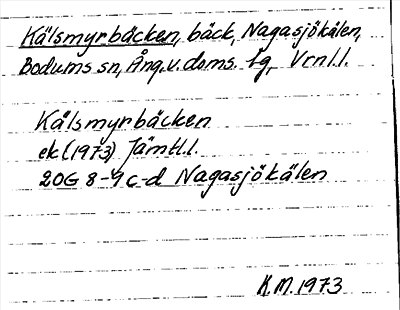 Kälsmyrbäcken, bäck, Nagasjökälen,
Bodums sn, Ång.v.doms. tg, Vrnl.l.
Kälsmyrbäcken
ek (1973) Jämtl.l.
20G 8-9 c-d Nagasjökälen
K.M. 1973